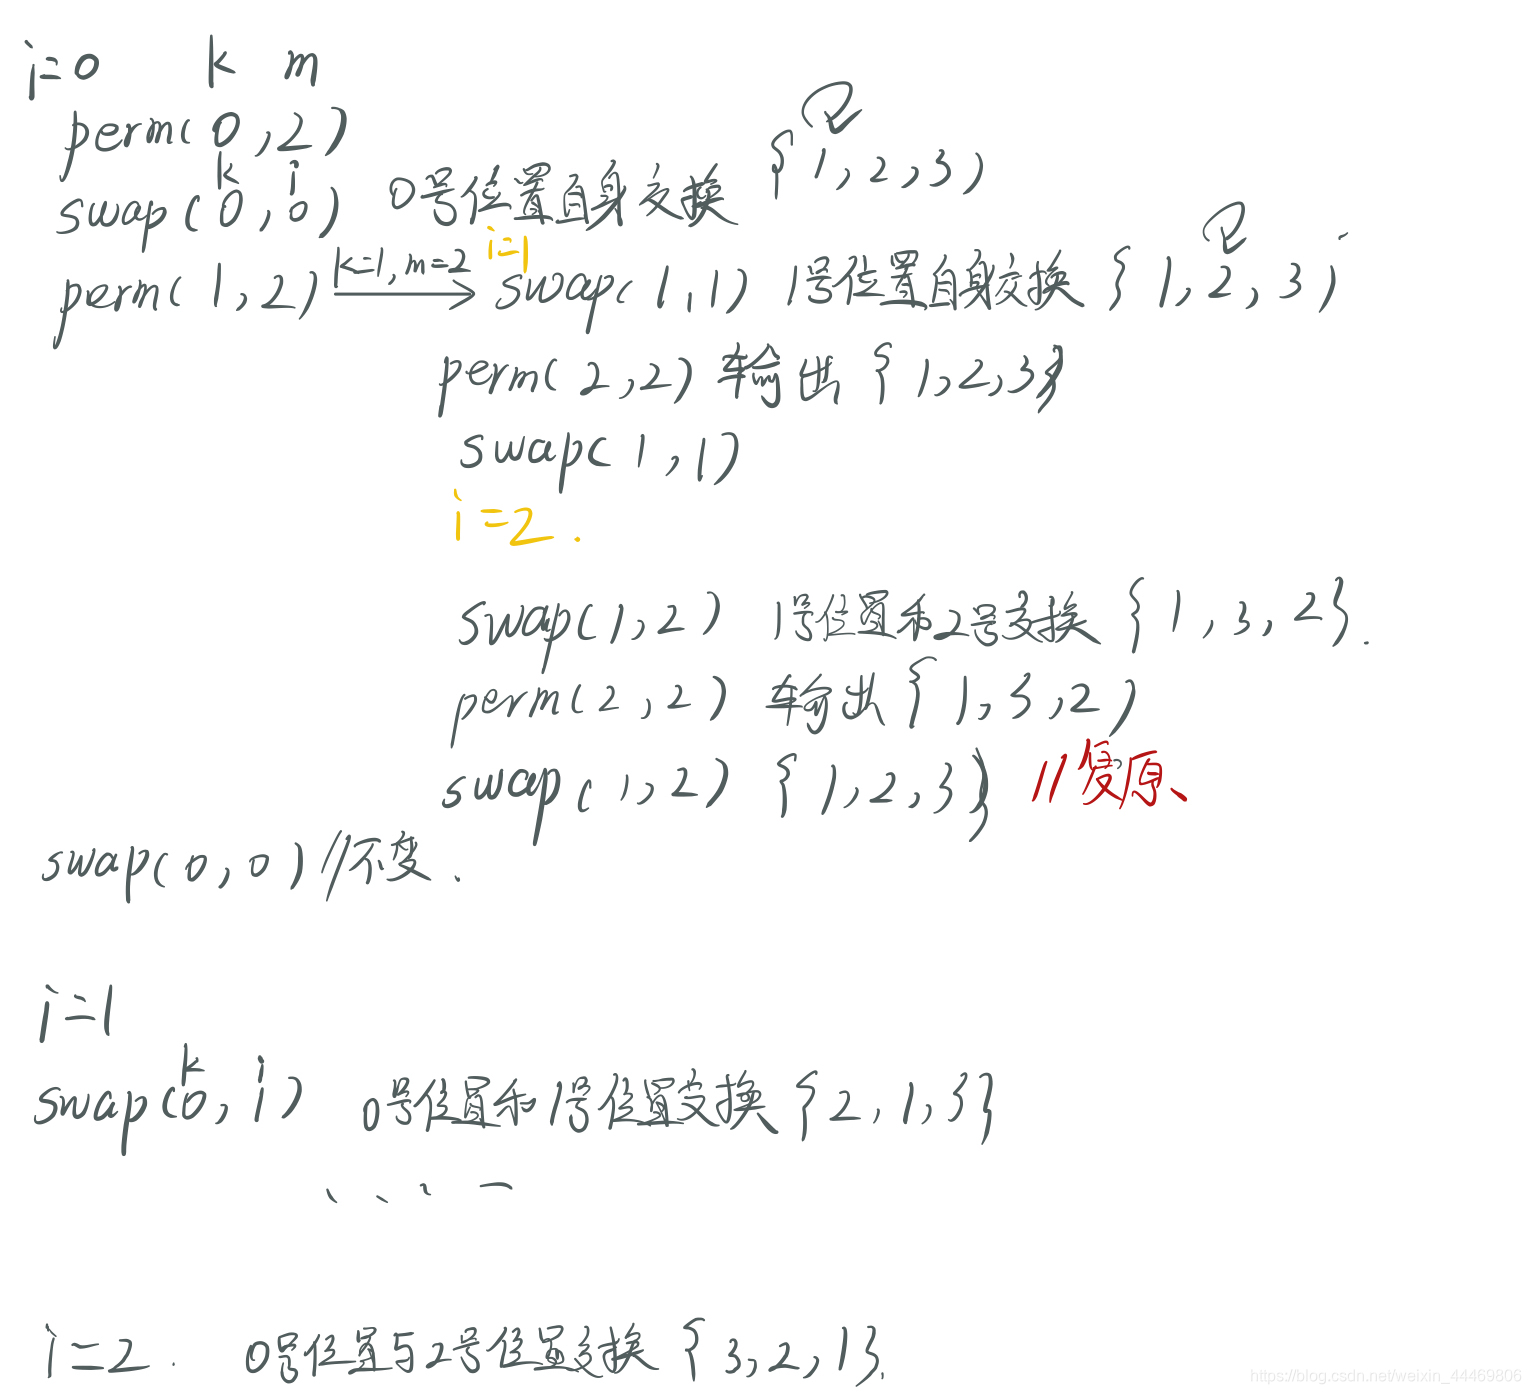 i=0 k m
perm(0,2)
k i
swap(0,0) 0号位置自身交换 {1,2,3}
i=1
perm(1,2) k=1,m=2 swap(1,1) 1号位置自身交换 {1,2,3}
perm(2,2) 输出 {1,2,3}
swap(1,1)
i=2.
swap(1,2) 1号位置和2号交换 {1,3,2}.
perm(2,2) 输出 {1,3,2}
swap(1,2) {1,2,3} //复原、
swap(0,0) //不变.
i=1
k i
swap(0,1) 0号位置和1号位置交换 {2,1,3}
i=2. 0号位置与2号位置交换 {3,2,1}.
https://blog.csdn.net/weixin_44469806